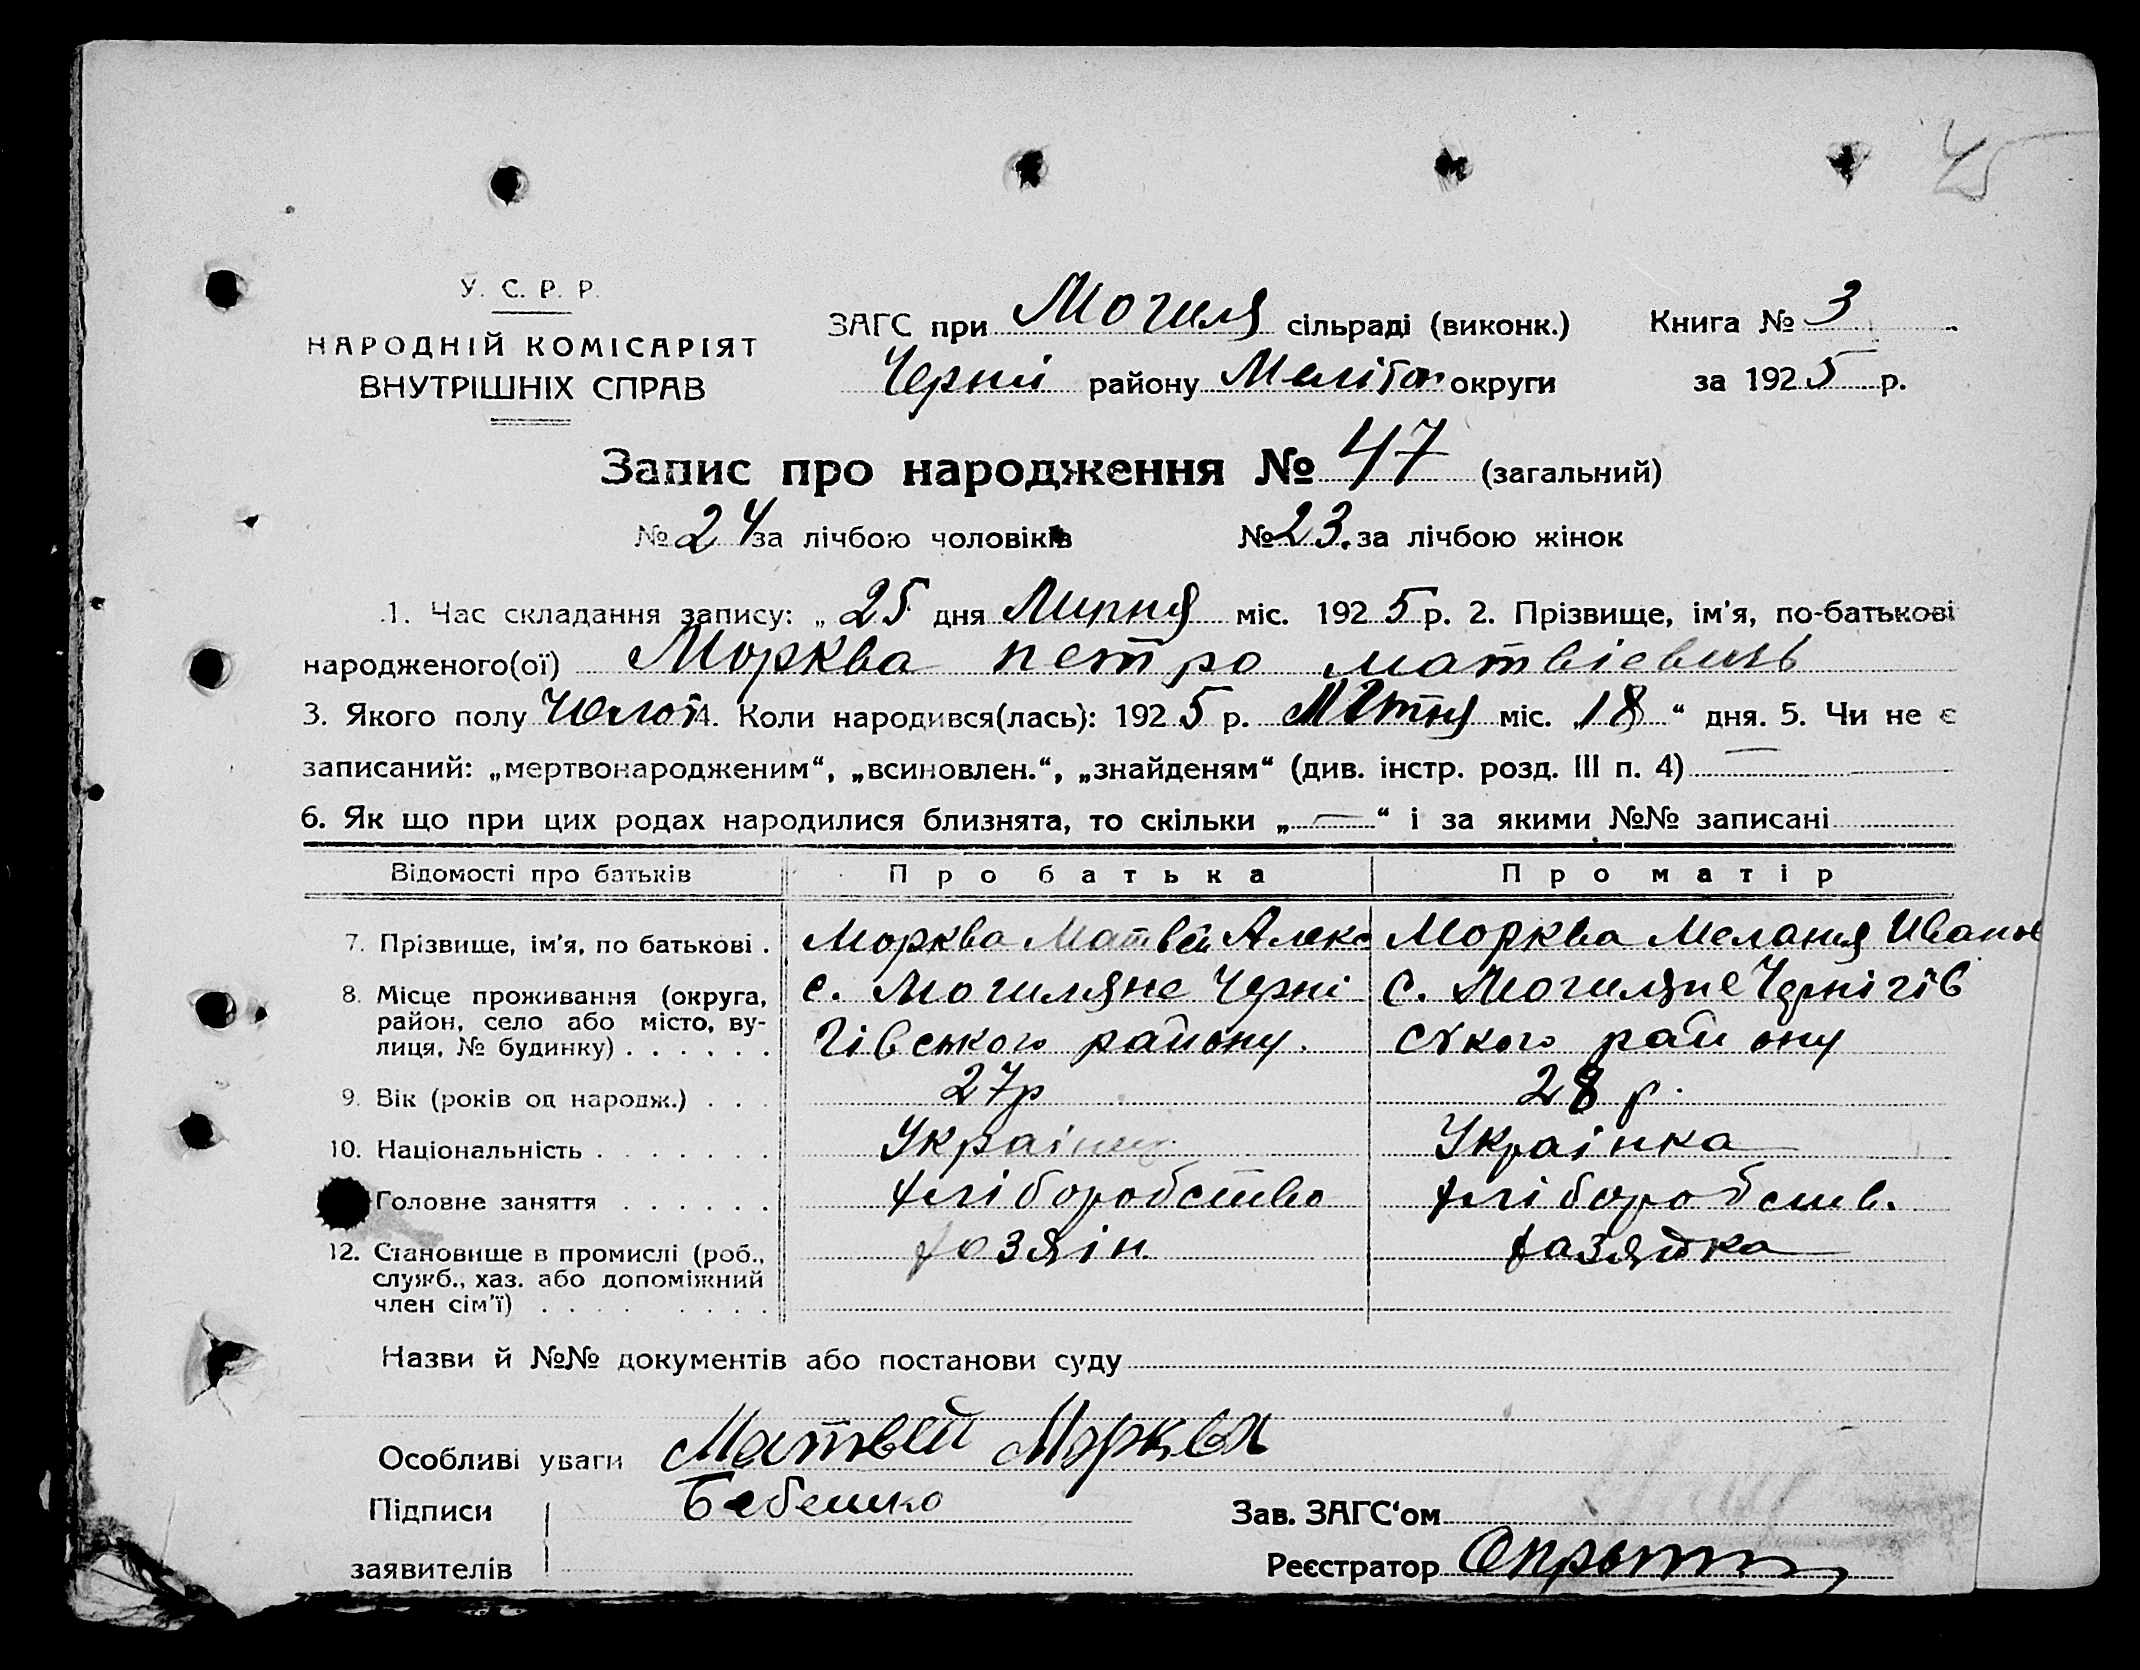 45
У. С. Р. Р.
НАРОДНІЙ КОМІСАРІЯТ
ВНУТРІШНІХ СПРАВ
ЗАГС при Могиля сільраді (виконк.) Книга № 3
Черни району Мелітоп округи за 1925 р.
Запис про народження № 47 (загальний)
№ 24 за лічбою чоловіків № 23. за лічбою жінок
1. Час складання запису: „ 25 дня Липня міс. 1925 р. 2. Прізвище, ім'я, по-батькові
народженого(ої) Морква петро матвіевичь
3. Якого полу Чолов 4. Коли народився(лась): 1925 р. міс. „18“ дня. 5. Чи не є
записаний: „мертвонародженим“, „всиновлен.“, „знайденям“ (див. інстр. розд. III п. 4) —
6. Як що при цих родах народилися близнята, то скільки „—“ і за якими №№ записані
Відомості про батьків Про батька Про матір
7. Прізвище, ім'я, по батькові . Морква Матвей Алекс Морква Мелания Иванов
8. Місце проживання (округа, с. Могиляне Черні с. Могиляне Чернігів
район, село або місто, ву-
лиця, № будинку) . . . . . . гівського району. ського району
9. Вік (років од народж.) . . . 27р 28 р.
10. Національність . . . . . . . Украінец Украінка
Головне заняття . . . . . . хліборобство хліборобств.
12. Становище в промислі (роб., хозяін хазяйка
служб., хаз. або допоміжний
член сім'ї) . . . . . . . .
Назви й №№ документів або постанови суду
Особливі уваги Матвей Морква
Підписи Бебешко Зав. ЗАГС‘ом
заявителів Реєстратор